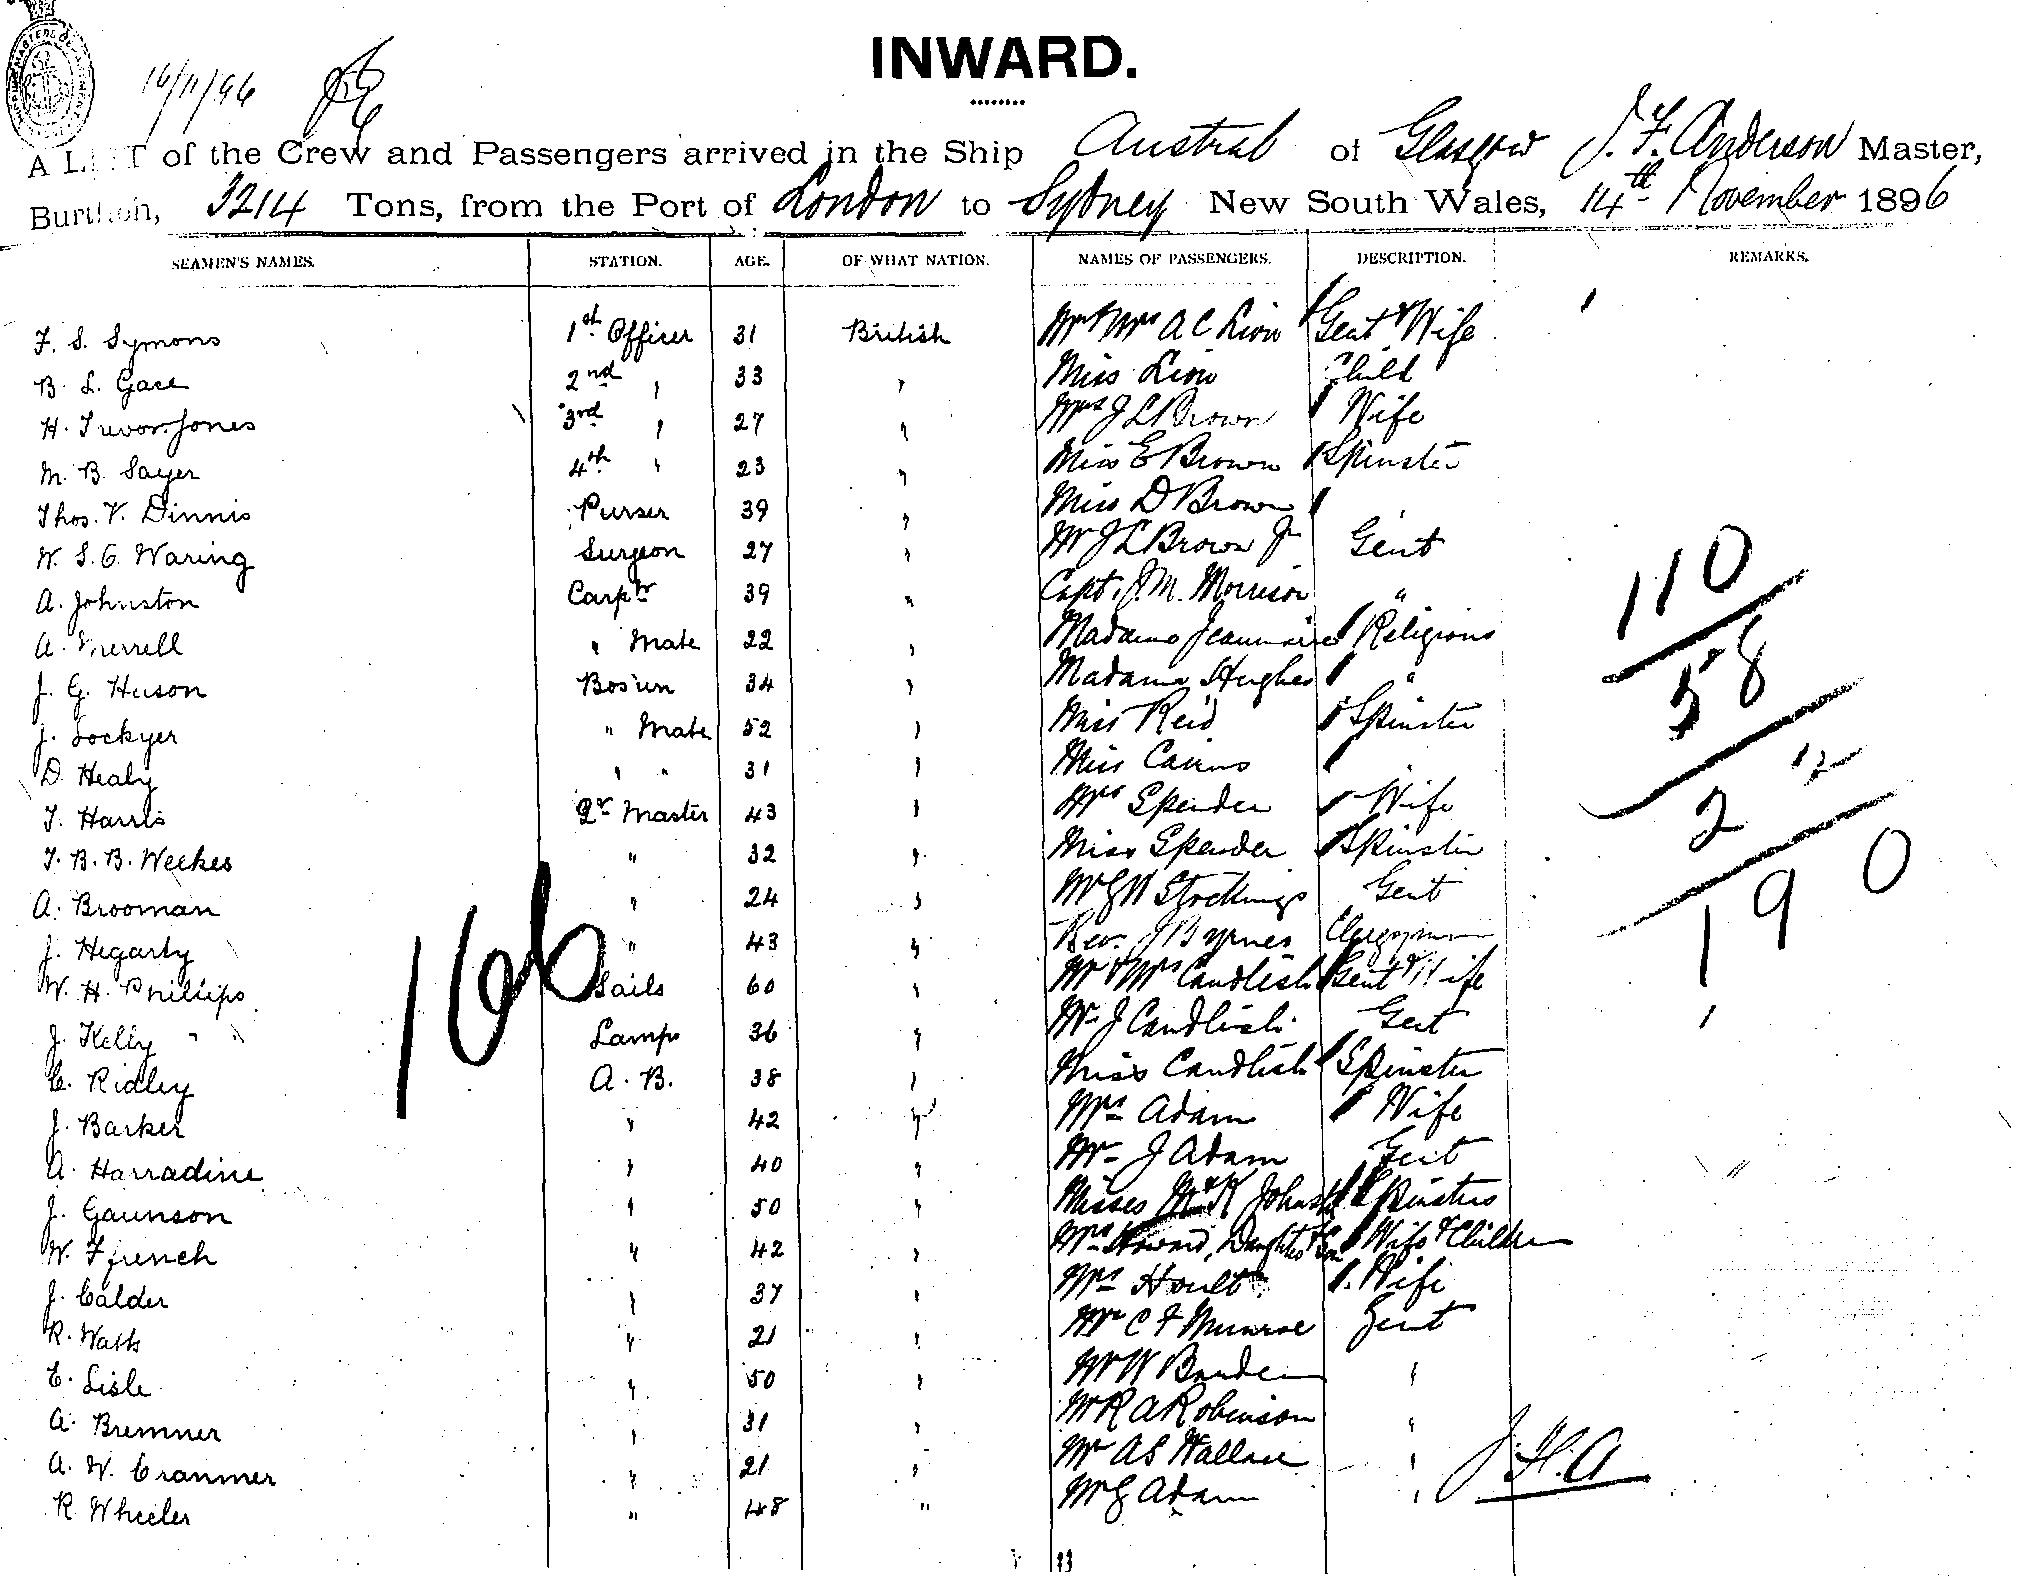 INWARD.
16/11/96
A LIST of the Crew and Passengers arrived in the Ship Austral of Glasgow J. F. Anderson Master,
Burthen, 3214 Tons, from the Port of London to Sydney New South Wales, 14th November 1896
SEAMEN'S NAMES. STATION. AGE. OF WHAT NATION. NAMES OF PASSENGERS. DESCRIPTION. REMARKS.
F. S. Symons 1st Officer 31 British Mr & Mrs A C Lion Gent & Wife
B. L. Gace 2nd " 33 " Miss Lion Child
H. Trevor Jones 3rd " 27 " Mrs J L Brown Wife
M. B. Sayer 4th " 23 " Miss E Brown Spinster
Thos. V. Dinnis Purser 39 " Miss D Brown
W. S. G. Waring Surgeon 27 " Mr J L Brown Jr Gent
A. Johnston Carptr 39 " Capt. J. M. Morrison "
A. Merrell " Mate 22 " Madame Religious
J. G. Huson Bosun 34 " Madame Hughes "
J. Lockyer " Mate 52 " Miss Reid Spinster
D. Healy " " 31 " Miss Cairns "
T. Harris Qr Master 43 " Mrs Spender Wife
T. B. B. Weekes " 32 " Miss Spender Spinster
A. Brooman " 24 " Mr G W Stockings Gent
J. Hegarty " 43 " Rev. J Byrnes Clergyman
W. H. Phillips Sails 60 " Mr & Mrs Candlish Gent & Wife
J. Kelly Lamps 36 " Mr J Candlish Gent
C. Ridley A. B. 38 " Miss Candlish Spinster
J. Barker " 42 " Mrs Adam Wife
A. Harradine " 40 " Mr J Adam Gent
J. Gaunson " 50 " Misses M & K Spinsters
W. Ffrench " 42 " Mrs Howard, Daughter & Son Wife & Children
J. Calder " 37 " Mrs Hoult Wife
R. Watts " 21 " Mr C F Munroe Gent
C. Lisle " 50 " Mr W "
A. Bremner " 31 " Mr R A Robinson "
A. W. Cranmer " 21 " Mr A S Wallace "
R. Wheeler " 48 " Mr G Adam "
166
110
58
2
190
J. H. A